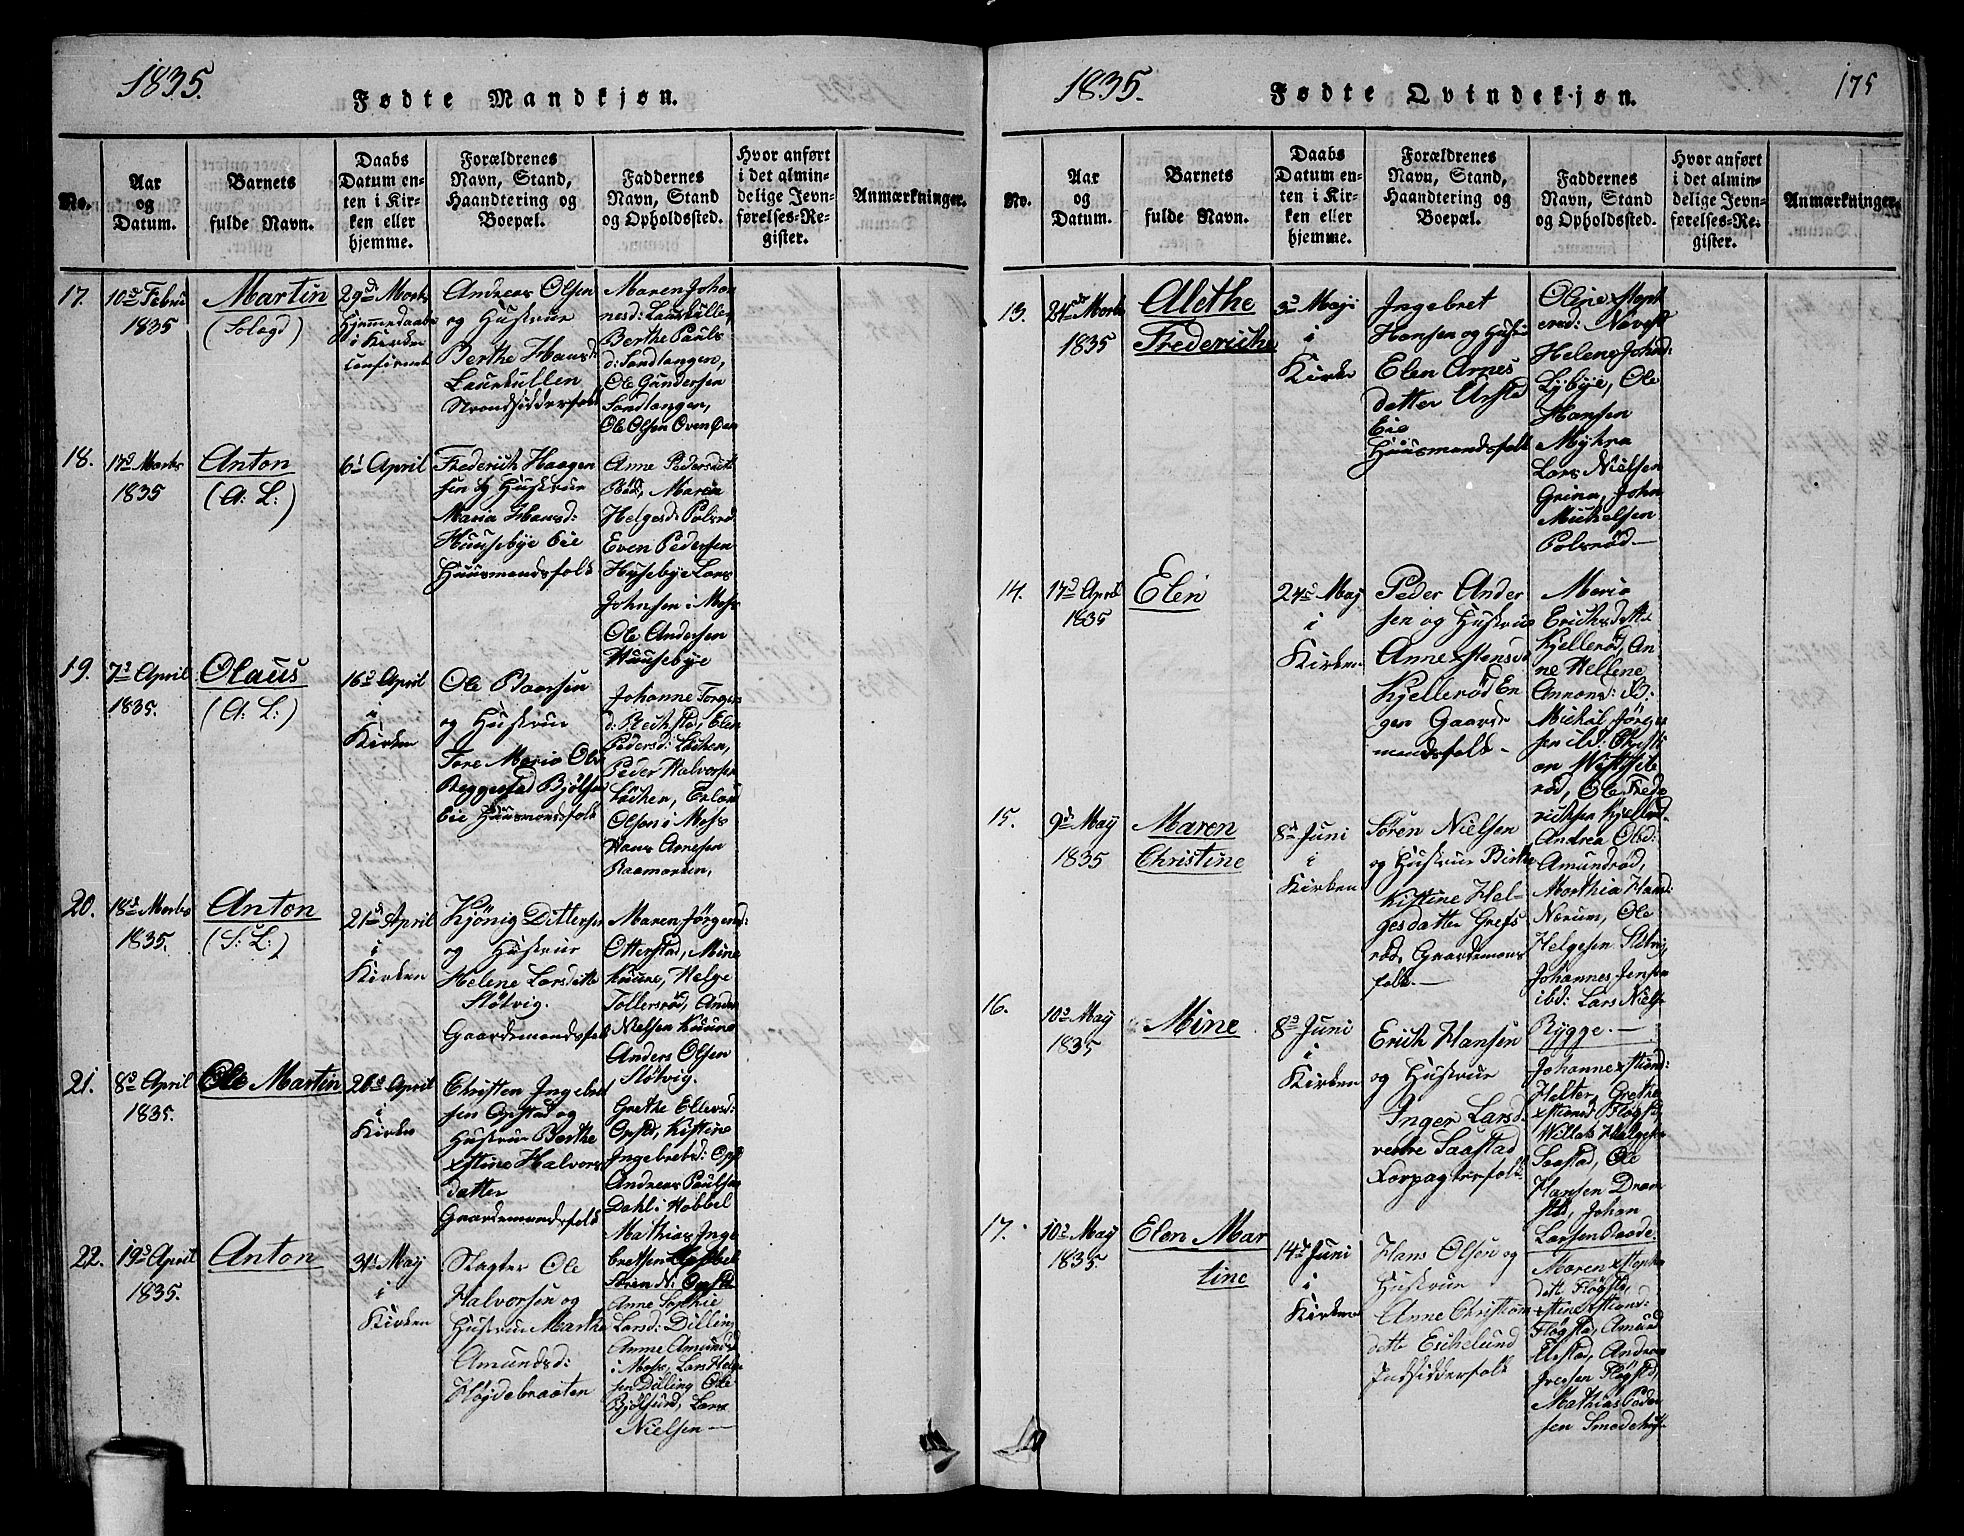 1835.
Fødte Mandkjøn.
No.
Aar og Datum.
Barnets fulde Navn.
Daabs Datum enten i Kirken eller hjemme.
Forældrenes Navn, Stand, Haandtering og Boepæl.
Faddernes Navn, Stand og Opholdsted.
Hvor anført i det almindelige Jevnførelses-Register.
Anmærkninger.
17.
10d Febru
1835
Martin
29d Marts
Hjemmedaaben
i Kirken
confirmert
Andreas Olsen
og Hustrue
Berthe Hansd:
Laurkullen
Strandsidderfolk
Maren Johan
nesd: Laurkullen
Berthe Pauls
d: Sandtangen,
Ole Gundersen
Sandtangen,
Ole Olsen Oven Øen
18.
17d Marts
1835
Anton
(A: L:)
6t April
Frederich Haagen
sen og Hustrue
Maria Hansd:
Huusebye Eie
Huusmandsfolk
Anne Pedersdatt
Rød, Maren
Helgesd: Polsrød
Even Pedersen
Hysebye Lars
Johnsen i Moss
Ole Andersen
Huusebye
19.
7d April
1835.
Olaus
(A: L:)
16d April
i
Kirken
Ole Baarsen
og Hustrue
Tore Maria Ols
Reggestad Bjølsen
Eie Huusmandsfolk
Johanne Torgers
d: Rechstad, Elen
Pedersd: Løchen,
Peder Halvorsen
Løchen, Erland
Olsen i Moss
Hans Arnesen
20.
18d Marts
1835.
Anton
(S: L:)
21d April
i
Kirken
Kjønig Dittersen
og Hustrue
Helene Larsdatte
Støtvig.
Gaardemandsfolk
Maren Jørgensd:
Otterstad, Mine
Kuune, Helge
Tollersrød, Anders
Nielsen Kuune
Anders Olsen
Støtvig.
21.
8d April
1835.
Ole Martin
26d April
i
Kirken
Christen Ingebret
sen Opstad og
Hustrue Berthe
Xstine Halvors
datter
Gaardemandsfolk
Grethe Ellevsd:
Opstd, Kistine
Ingebretsd: Opst
Andreas Paulsen
Dahl i Hobbel
Mathias Inge
bretsen
Søren N: Opstd
22.
19d April
1835.
Anton
31d May
i
Kirken
Slagter Ole
Halvorsen og
Hustrue Marthe
Amundsd:
Høgdebraaten
Anne Sophie
Larsd: Dilling
Anne Amundsd
i Moss, Lars Helge
sen Dilling Ole
Bjølsund, Lars
Nielsen —
1835.
Fødte Qvindekjøn.
175
No.
Aar og Datum.
Barnets fulde Navn.
Daabs Datum enten i Kirken eller hjemme.
Forældrenes Navn, Stand, Haandtering og Boepæl.
Faddernes Navn, Stand og Opholdsted.
Hvor anført i det almindelige Jevnførelses-Register.
Anmærkninger.
13.
24de Marts
1835
Alethe
Frederiche
3d Maji
i
Kirken
Ingebret
Hansen og Hustr
Elen Arnes
datter Arstd
Eie
Huusmandsfolk
Oline Xstoph
ersd:
Helene Johnsd:
Lybye, Ole
Hansen
Myhra
Lars Nielsen
Grina, John
Michelsen
Polsrød —
14.
17d April
1835
Elen
24d May
i
Kirken
Peder Ander
sen og Hustrue
Anne Xstensd:
Kjellerød En
gen Gaarde
mandsfolk —
Maria
Erichsdatter
Kjellerød, An
ne Hellene
Michal Jørgen
sen ibd: Christi
an
rød, Ole Frede
richsen Kjellerød.
15.
9d May
1835
Maren
Christine
8d Juni
i
Kirken
Søren Nielsen
og Hustrue Birthe
Kistine Hel
gesdatter Grefs
rød, Gaardemans
folk. —
Andrea Olsd:
Amundrød,
Marthia Hansd:
Nærum, Ole
Helgesen Støtvig
Johannes Jensen
ibd: Lars Niels
Rygge. —
16.
10d May
1835
Mine
8d Juni
i
Kirken
Erich Hansen
og Hustrue
Inger Larsd:
vestre Saastad
Forpagterfolk
Johanne Xstiansd:
Helter, Grethe
Xstiansd Fløgstd,
Willas Helgesen
Saastad, Ole
Hansen Dram
stad, Johan
Larsen Raade.
17.
10d May
1835.
Elen Mar
tine
14d Juni
i
Kirken
Hans Olsen og
Hustrue
Anne Christians
datte Eschelund
Indsidderfolk
Maren Xstophe
datt Fløgstd,
Xstine Xstiansd:
Fløgstd, Amund
Ulestad, Andreas
Jensen Fløgstd,
Mathias Peder
sen Smedehus